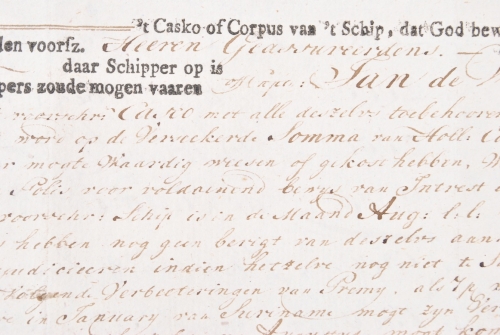 't Casko of Corpus van 't Schip, dat God bew
den voorsz. Heeren Geassureerdens.
daar Schipper op is
pers zoude mogen vaaren Jan de
voorschr: Casco met alle deszelvs toebehooren
word op de Versekerde Somma van Holl: C
mogte Waardig weesen of gekost hebben, W
Polis voor voldoenend bewys van Intrest
voorschr: Schip is in de Maand Aug: l: l:
hebben nog geen berigt van deszelvs aan
judiciceeren indien hetzelve nog niet te S
Verbeeteringen van Premy, als 7 p
in January van Suriname mogt zyn